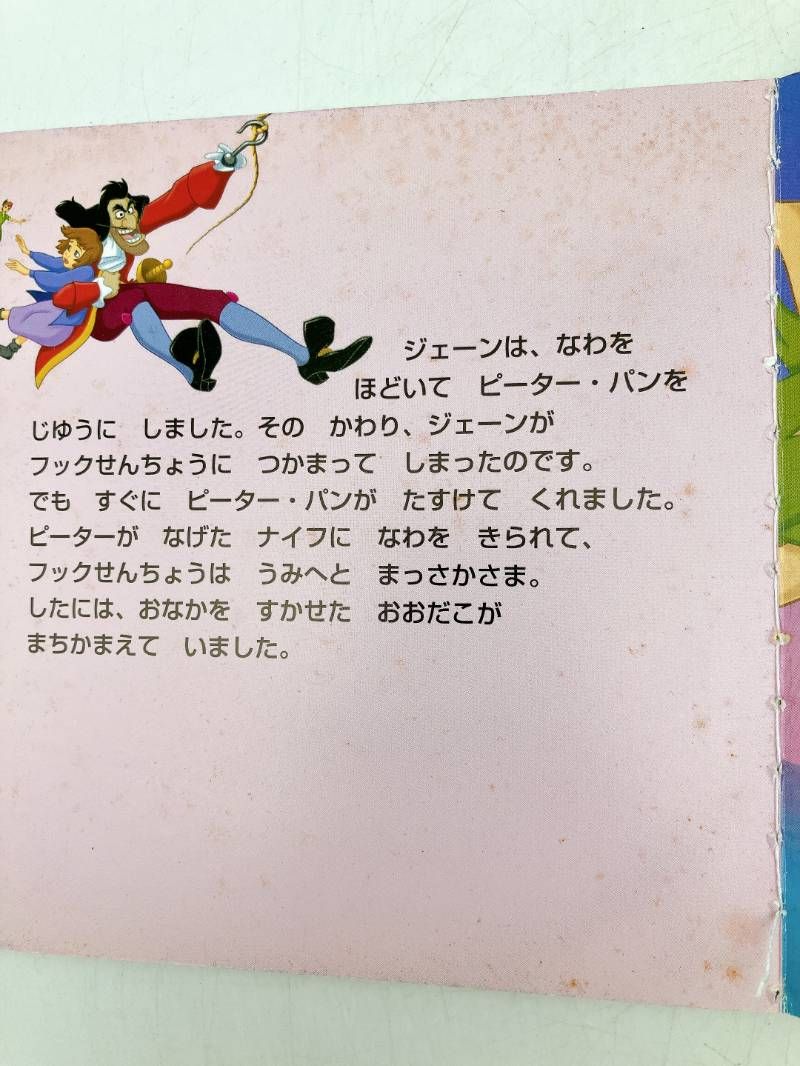 ジェーンは、なわを
ほどいて　ピーター・パンを
じゆうに　しました。その　かわり、ジェーンが
フックせんちょうに　つかまって　しまったのです。
でも　すぐに　ピーター・パンが　たすけて　くれました。
ピーターが　なげた　ナイフに　なわを　きられて、
フックせんちょうは　うみへと　まっさかさま。
したには、おなかを　すかせた　おおだこが
まちかまえて　いました。